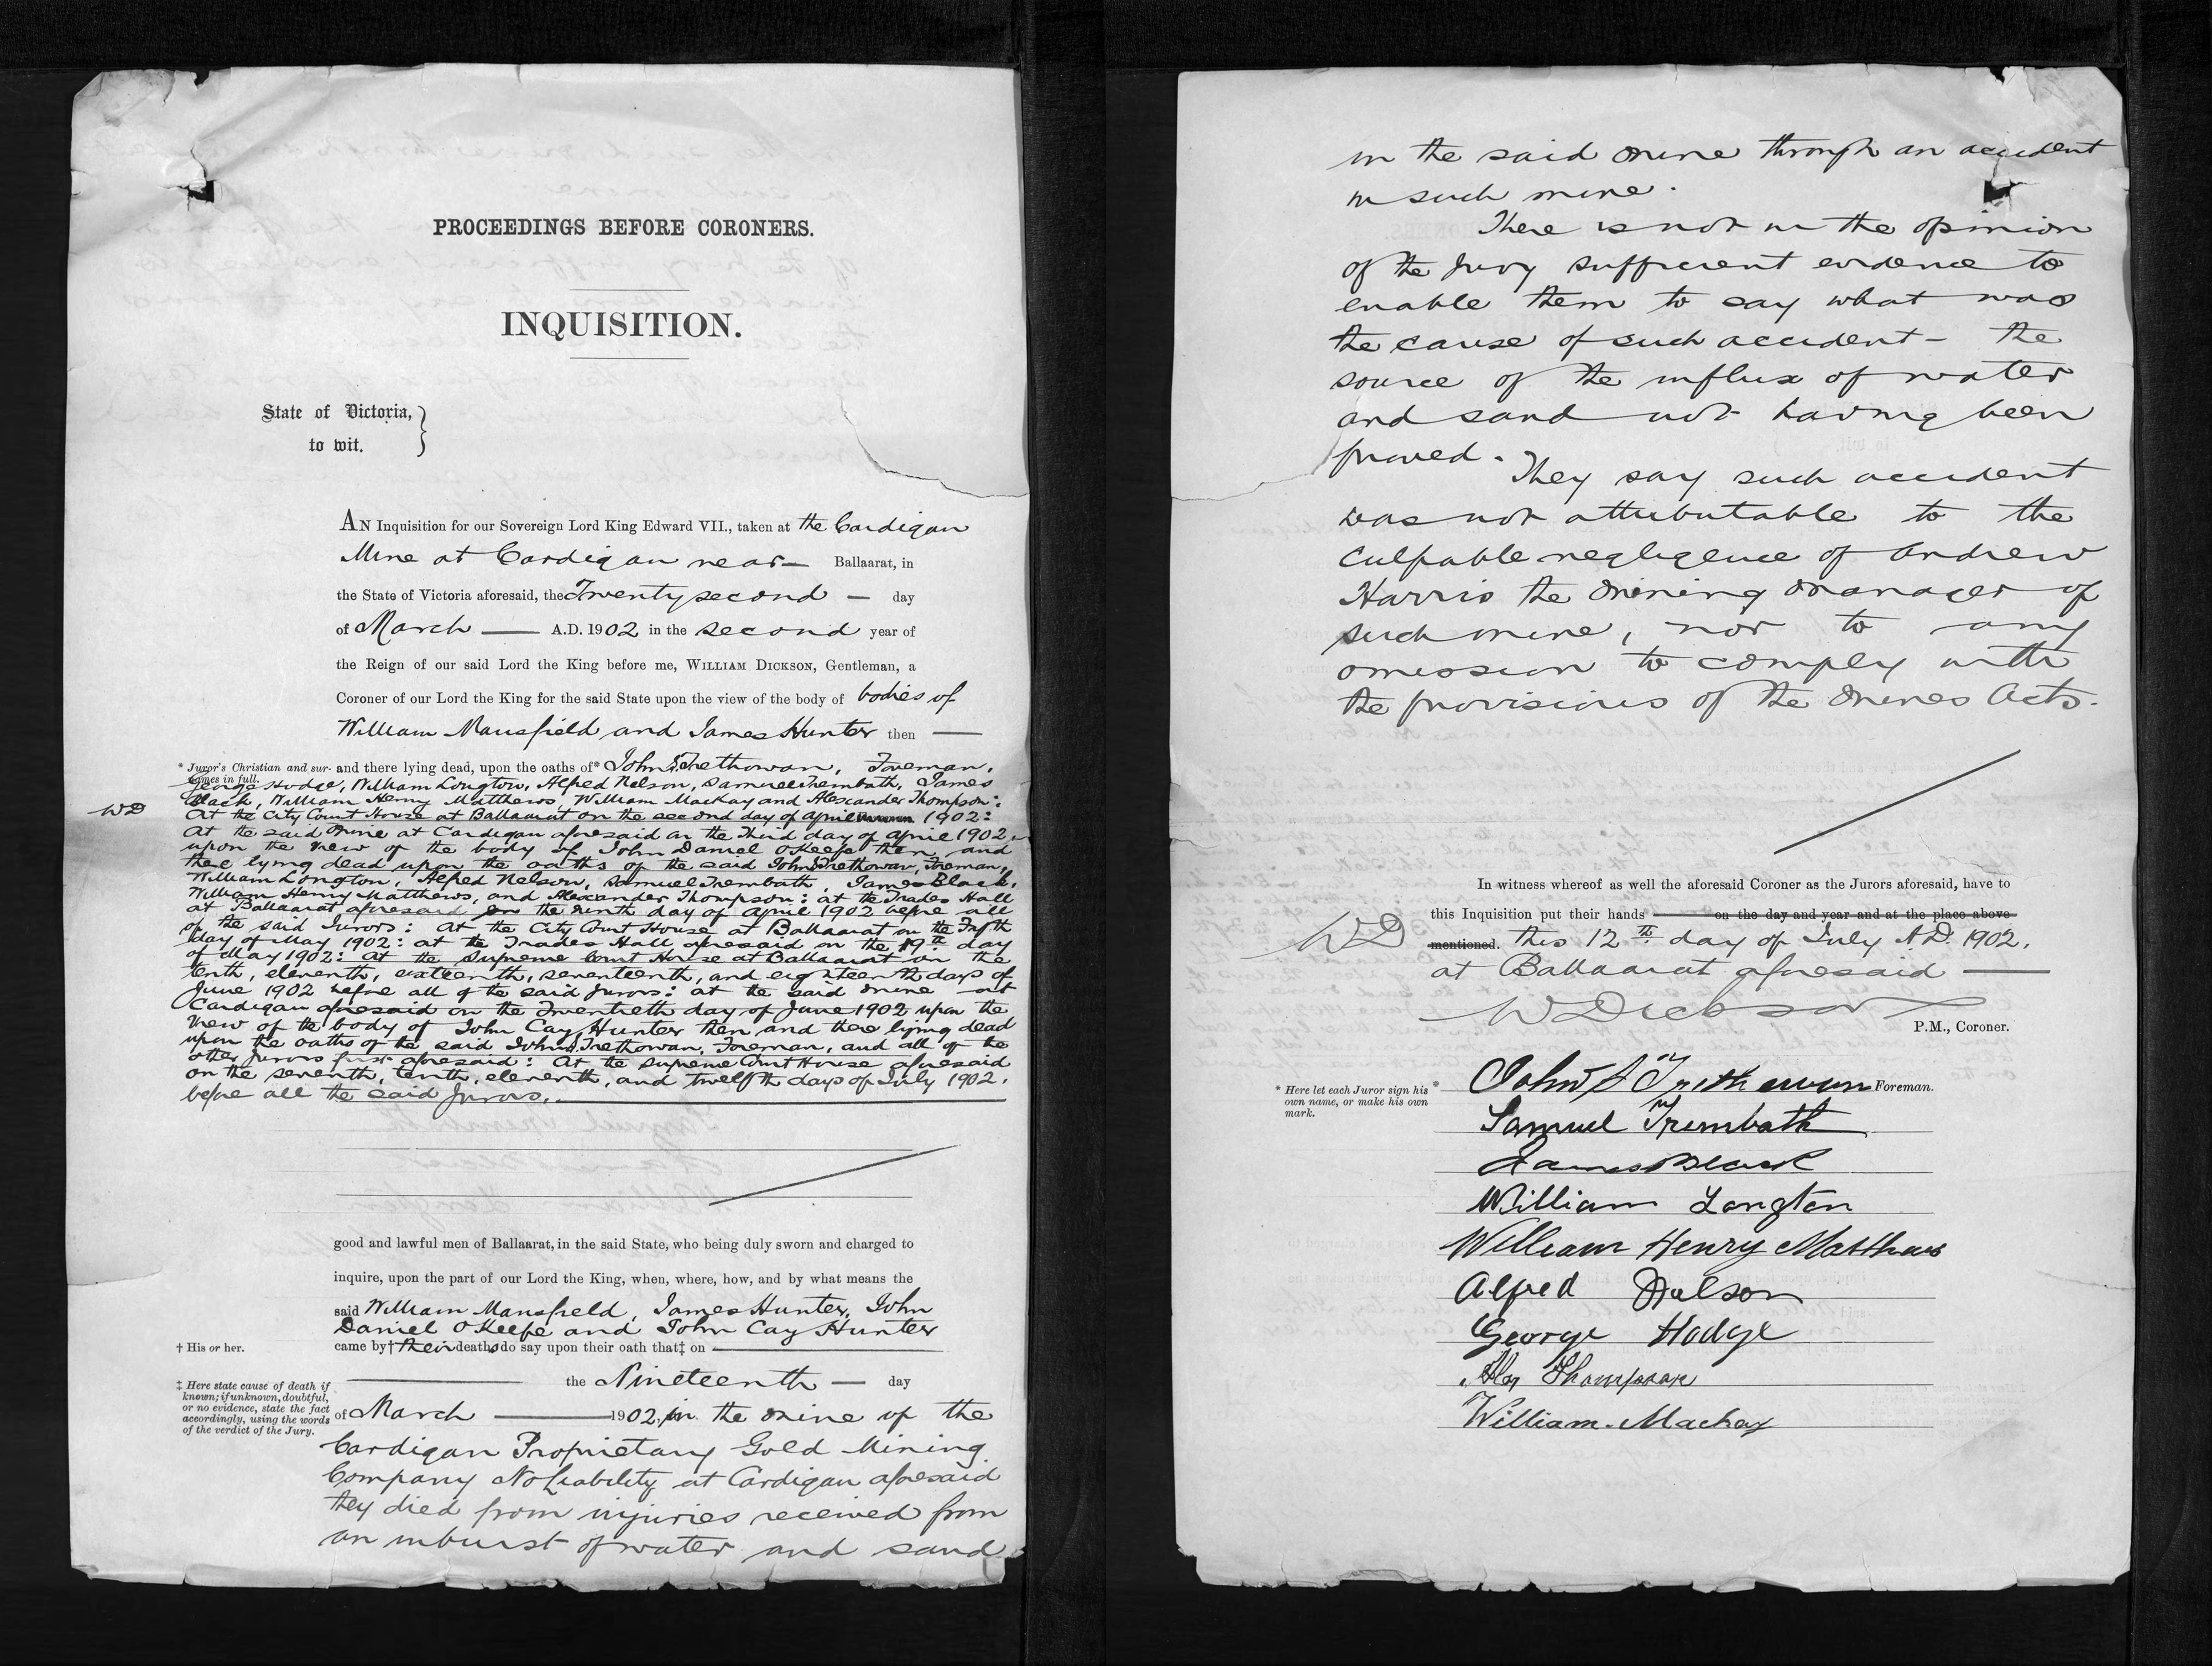 PROCEEDINGS BEFORE CORONERS.
INQUISITION.
State of Victoria,
to wit.
AN Inquisition for our Sovereign Lord King Edward VII., taken at the Cardigan
Mine at Cardigan near — Ballaarat, in
the State of Victoria aforesaid, the Twenty second — day
of March — A.D. 1902 in the second year of
the Reign of our said Lord the King before me, WILLIAM DICKSON, Gentleman, a
Coroner of our Lord the King for the said State upon the view of the body of bodies of
William Mansfield and James Hunter then —
* Juror's Christian and sur-names in full.
and there lying dead, upon the oaths of* John S Trethowan, Foreman,
George Hodge, William Longton, Alfred Nelson, Samuel Trembath, James
Black, William Henry Matthews, William Mackay and Alexander Thompson:
WD
At the City Court House at Ballaarat on the second day of April 1902:
At the said Mine at Cardigan aforesaid on the Third day of April 1902
upon the view of the body of John Daniel OKeefe then and
there lying dead upon the oaths of the said John S Trethowan, Foreman,
William Longton, Alfred Nelson, Samuel Trembath, James Black,
William Henry Matthews, and Alexander Thompson: at the Trades Hall
at Ballaarat aforesaid on the ninth day of April 1902 before all
of the said Jurors: At the City Court House at Ballaarat on the
day of May 1902: at the Trades Hall aforesaid on the 19th day
of May 1902: At the Supreme Court House at Ballaarat on the
tenth, eleventh, sixteenth, seventeenth, and eighteenth days of
June 1902 before all of the said Jurors: at the said mine at
Cardigan aforesaid on the Twentieth day of June 1902 upon the
view of the body of John Cay Hunter then and there lying dead
upon the oaths of the said John S Trethowan, Foreman, and all of the
other Jurors first aforesaid: At the Supreme Court House aforesaid
on the seventh, tenth, eleventh, and twelfth days of July 1902.
before all the said Jurors.
good and lawful men of Ballaarat, in the said State, who being duly sworn and charged to
inquire, upon the part of our Lord the King, when, where, how, and by what means the
said William Mansfield, James Hunter, John
Daniel OKeefe and John Cay Hunter
† His or her.
came by† their deaths do say upon their oath that‡ on —
— the Nineteenth — day
‡ Here state cause of death if
known; if unknown, doubtful,
or no evidence, state the fact
accordingly, using the words
of the verdict of the Jury.
of March — 1902, in the mine of the
Cardigan Proprietary Gold Mining
Company No Liability at Cardigan aforesaid
they died from injuries received from
an inburst of water and sand
in the said mine through an accident
in such mine.
There is not in the opinion
of the Jury sufficient evidence to
enable them to say what was
the cause of such accident - the
source of the influx of water
and sand not having been
proved.
They say such accident
was not attributable to the
culpable negligence of Andrew
Harris the mining manager of
such mine, nor to any
omission to comply with
the provisions of the Mines Acts.
In witness whereof as well the aforesaid Coroner as the Jurors aforesaid, have to
this Inquisition put their hands — on the day and year and at the place above
WD
mentioned. this 12th day of July A.D. 1902.
at Ballaarat aforesaid —
W Dickson
P.M., Coroner.
* Here let each Juror sign his
own name, or make his own
mark.
* John S Trethowan Foreman.
Samuel Trembath
James Black
William Longton
William Henry Matthews
Alfred Nelson
George Hodge
Alex Thompson
William Mackay